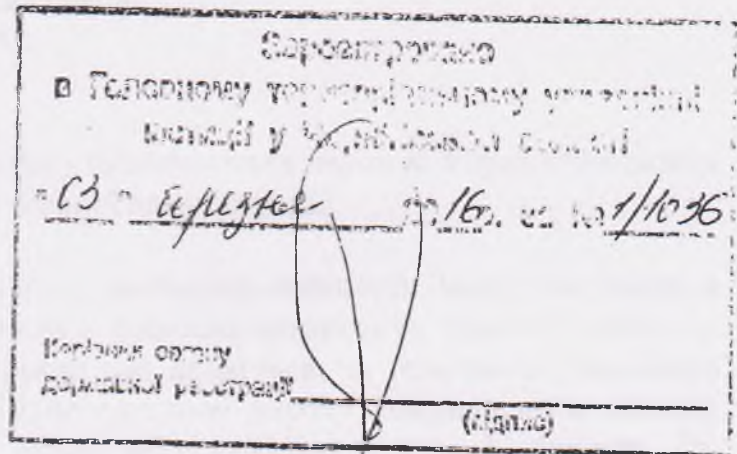 Зареєстровано
в Головному територіальному управлінні
юстиції у області
"03" березня 2016р. за № 1/1036
Керівник органу
державної реєстрації
(підпис)